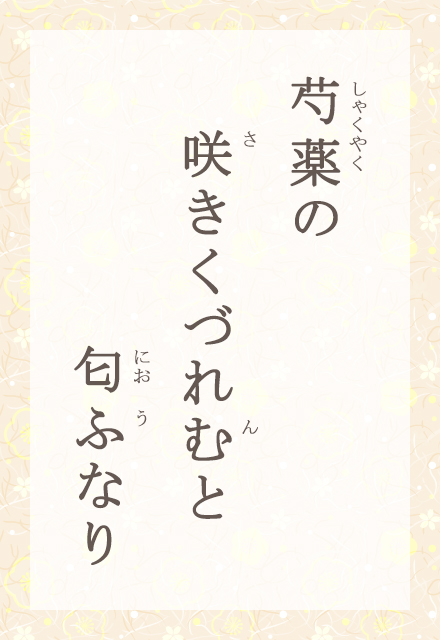 芍薬の
しゃくやく
咲きくづれむと
さ
ん
匂ふなり
にお
う